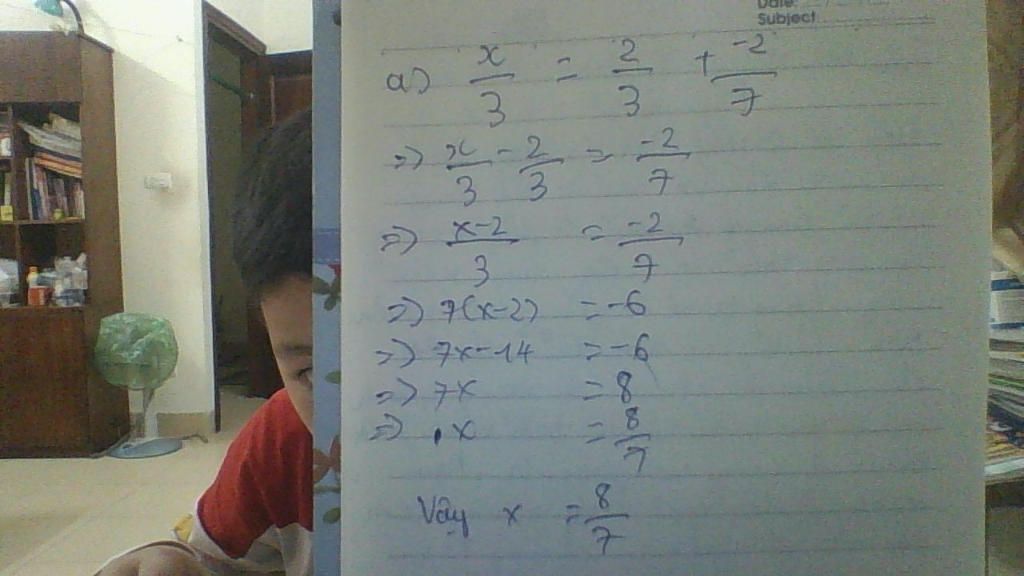 Date:
Subject
a) x/3 = 2/3 + -2/7
=> x/3 - 2/3 = -2/7
=> x-2/3 = -2/7
=> 7(x-2) = -6
=> 7x-14 = -6
=> 7x = 8
=> x = 8/7
Vậy x = 8/7